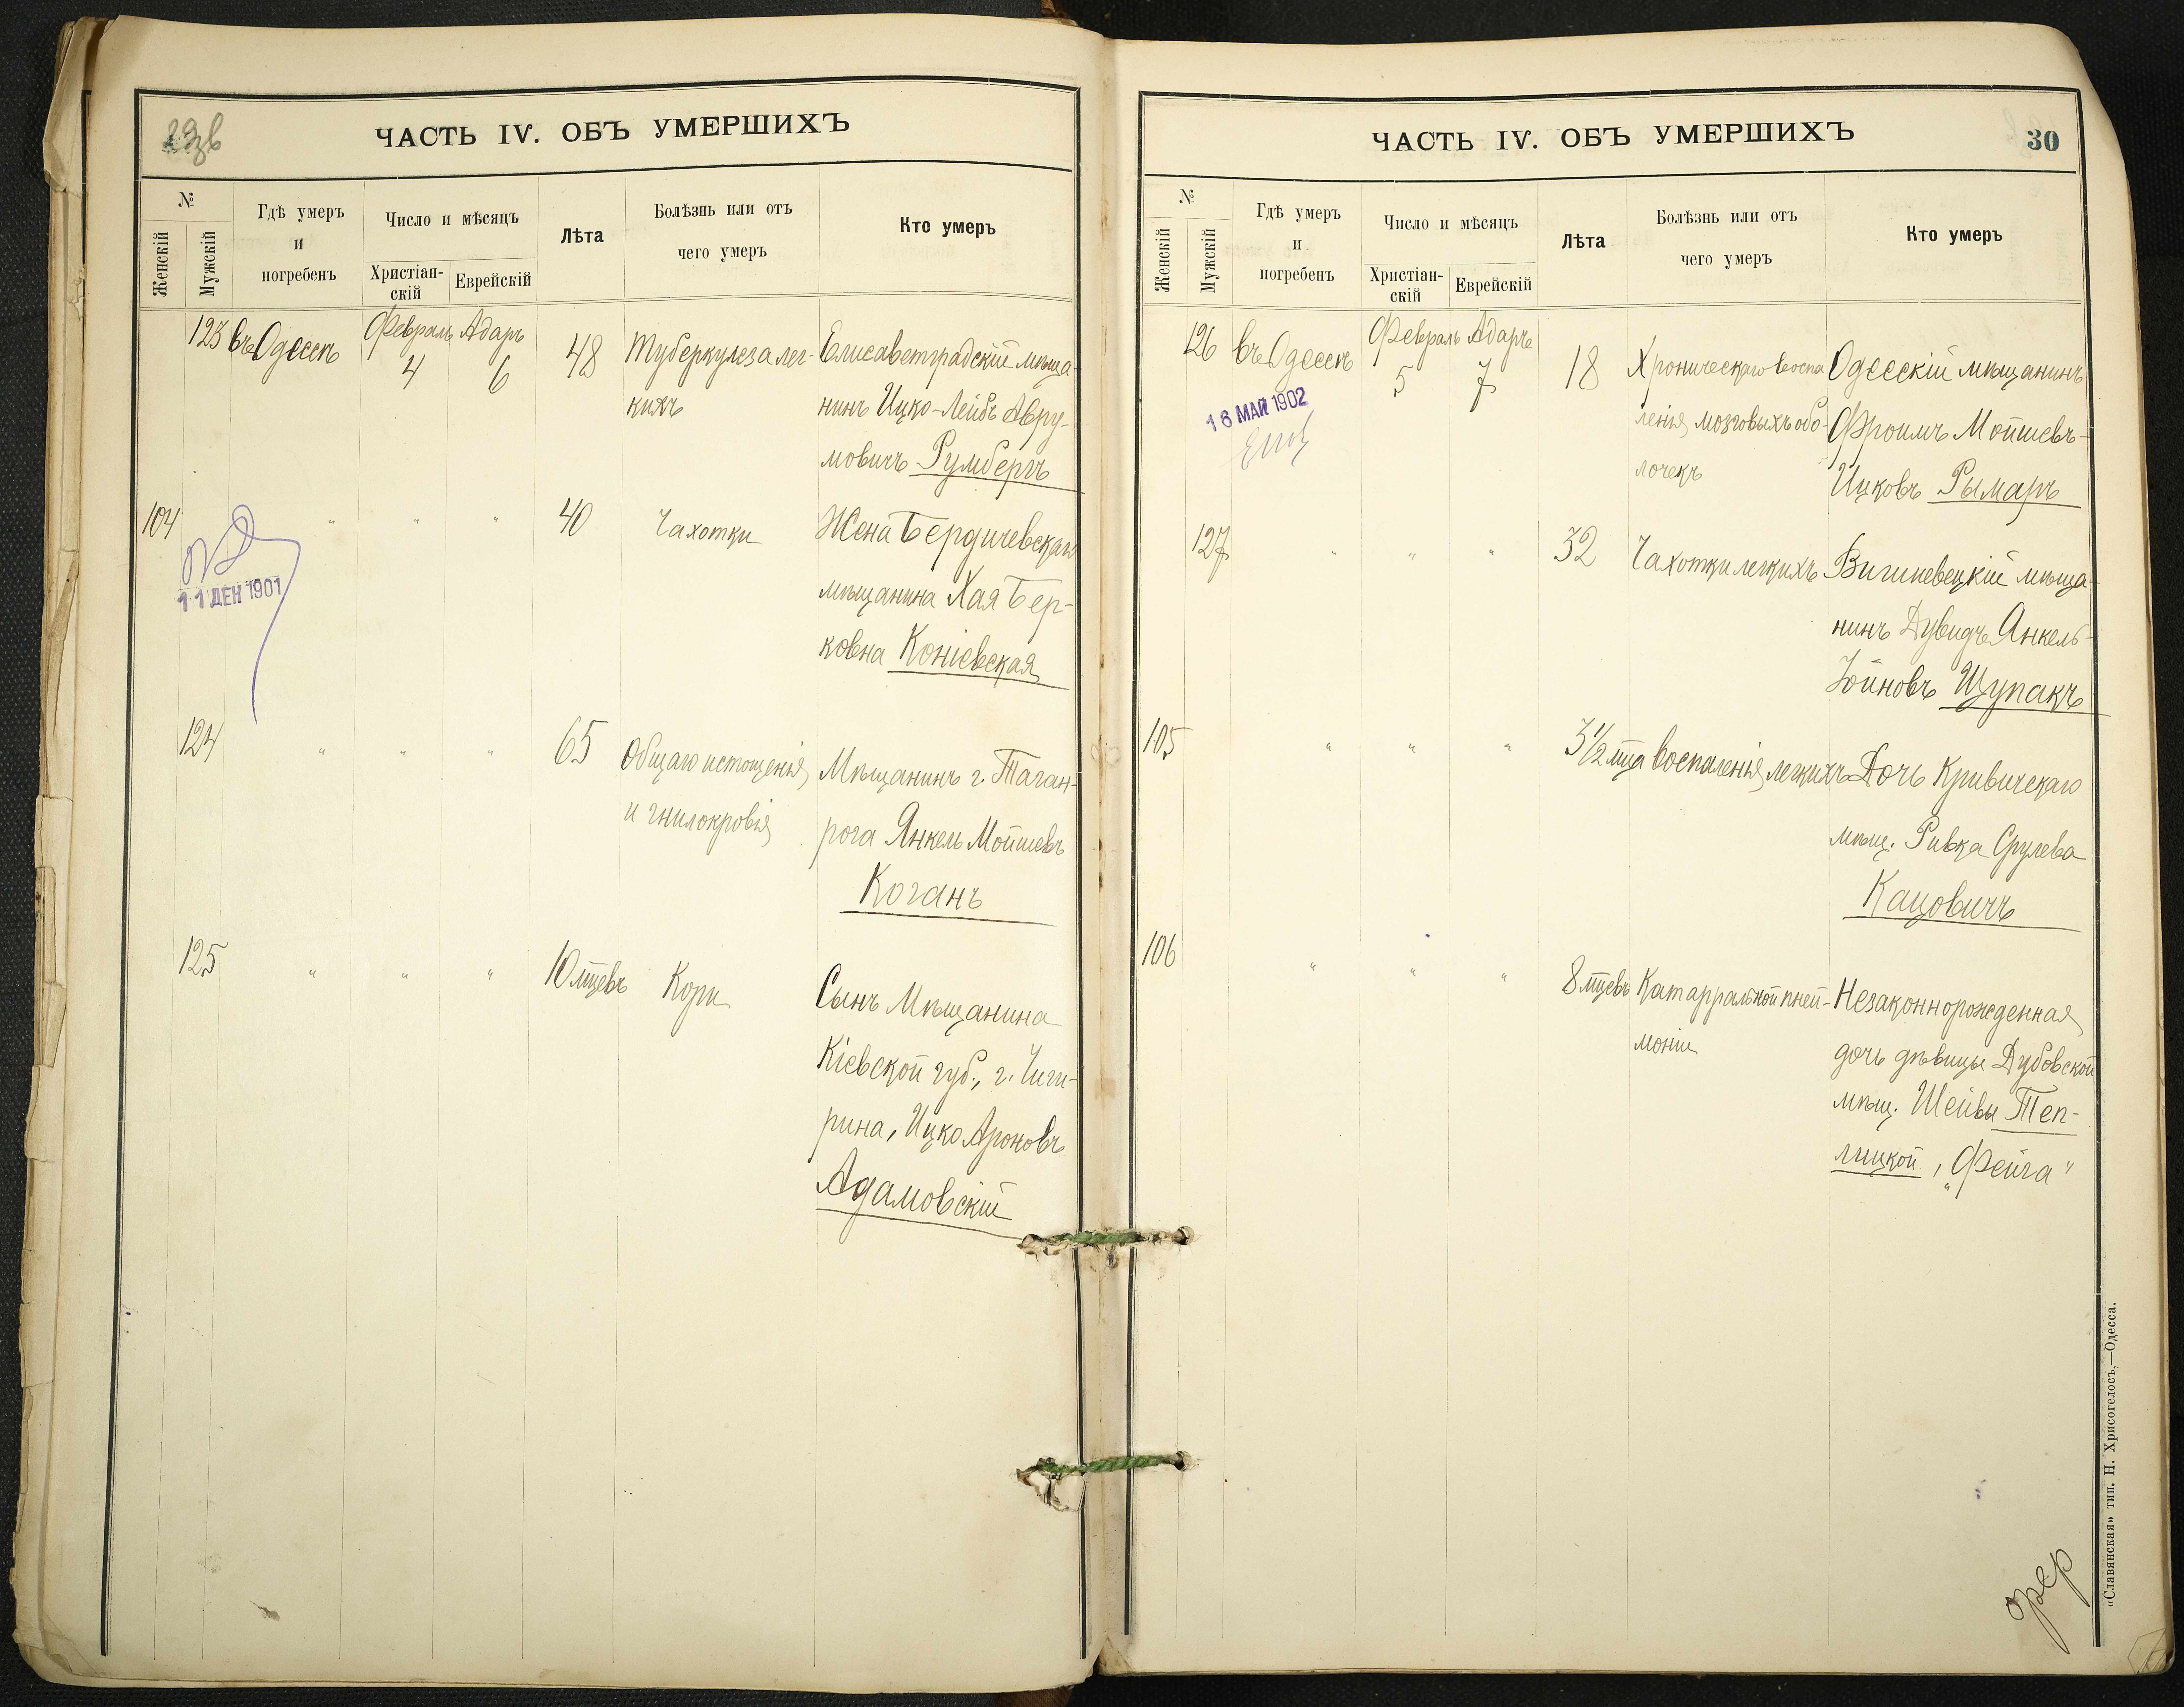 ЧАСТЬ IV. ОБЪ УМЕРШИХЪ
№
Женскій
Мужскій
Гдѣ умеръ
и
погребенъ
Число и мѣсяцъ
Христіан-
скій
Еврейскій
Лѣта
Болѣзнь или отъ
чего умеръ
Кто умеръ
123 въ Одессѣ Февраль 4 Адаръ 6 48 Туберкулеза лег-
кихъ
Елисаветградскій мѣща-
нинъ Ицко-Лейбъ Авру-
мовичъ Румбергъ
104 " " " 40 Чахотки
Жена Бердичевскаго
мѣщанина Хая Бер-
ковна Коніевская
11 ДЕК 1901
124 " " " 65 Общаго истощенія
и гнилокровія
Мѣщанинъ г. Таган-
рога Янкель Мойшевъ
Коганъ
125 " " " 10 мцевъ Кори
Сынъ Мѣщанина
Кіевской губ., г. Чиги-
рина, Ицко Ароновъ
Адамовскій
ЧАСТЬ IV. ОБЪ УМЕРШИХЪ
30
№
Женскій
Мужскій
Гдѣ умеръ
и
погребенъ
Число и мѣсяцъ
Христіан-
скій
Еврейскій
Лѣта
Болѣзнь или отъ
чего умеръ
Кто умеръ
126 въ Одессѣ Февраль 5 Адаръ 7 18 Хроническаго воспа
ленія мозговыхъ обо-
лочекъ
Одесскій мѣщанинъ
Фроимъ Мойшевъ-
Ицковъ Рымаръ
16 МАЙ 1902
127 " " " 32 Чахотки легкихъ
Вишневецкій мѣща-
нинъ Дувидъ Янкель-
Іойновъ Щупакъ
105 " " " 3½ мца Воспаленія легкихъ
Дочь Кривичскаго
мѣщ. Ривка Срулева
Кацовичъ
106 " " " 8 мцевъ Катарральной пней-
моніи
Незаконнорожденная
дочь дѣвицы Дубовской
мѣщ. Шейвы Теп-
лицкой, „Фейга"
«Славянская» тип. Н. Хрисогелосъ,—Одесса.